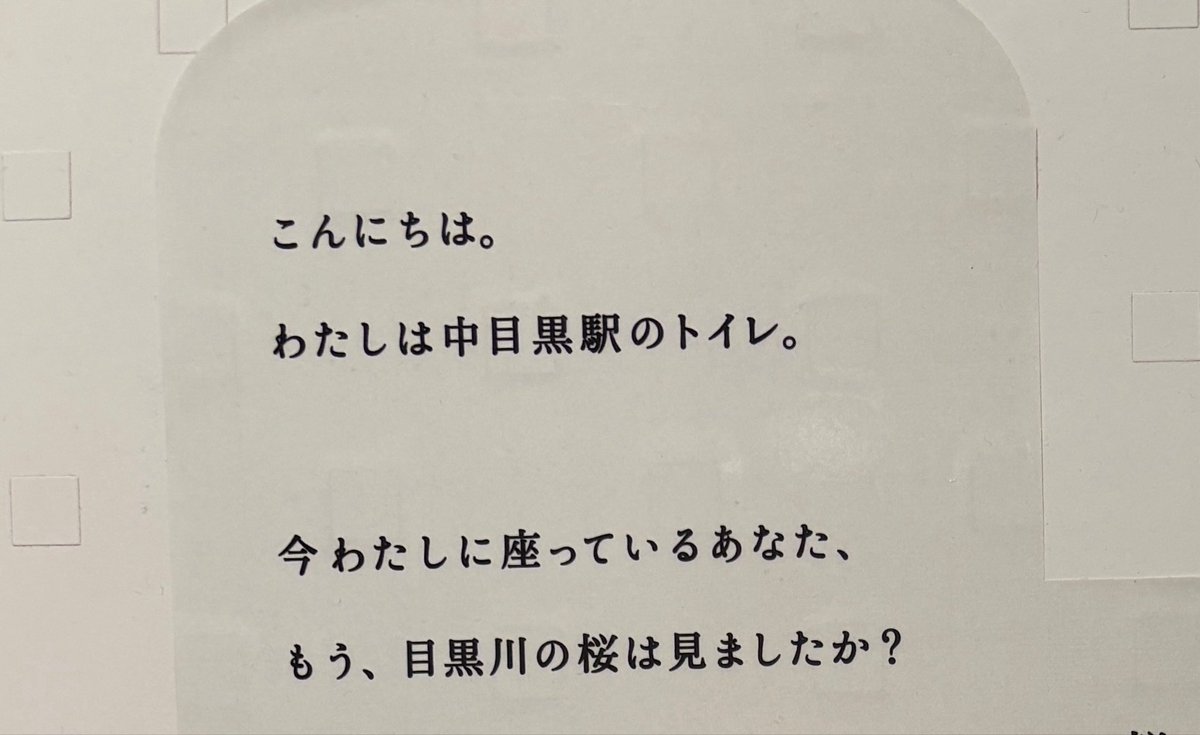 こんにちは。
わたしは中目黒駅のトイレ。
今わたしに座っているあなた、
もう、目黒川の桜は見ましたか？